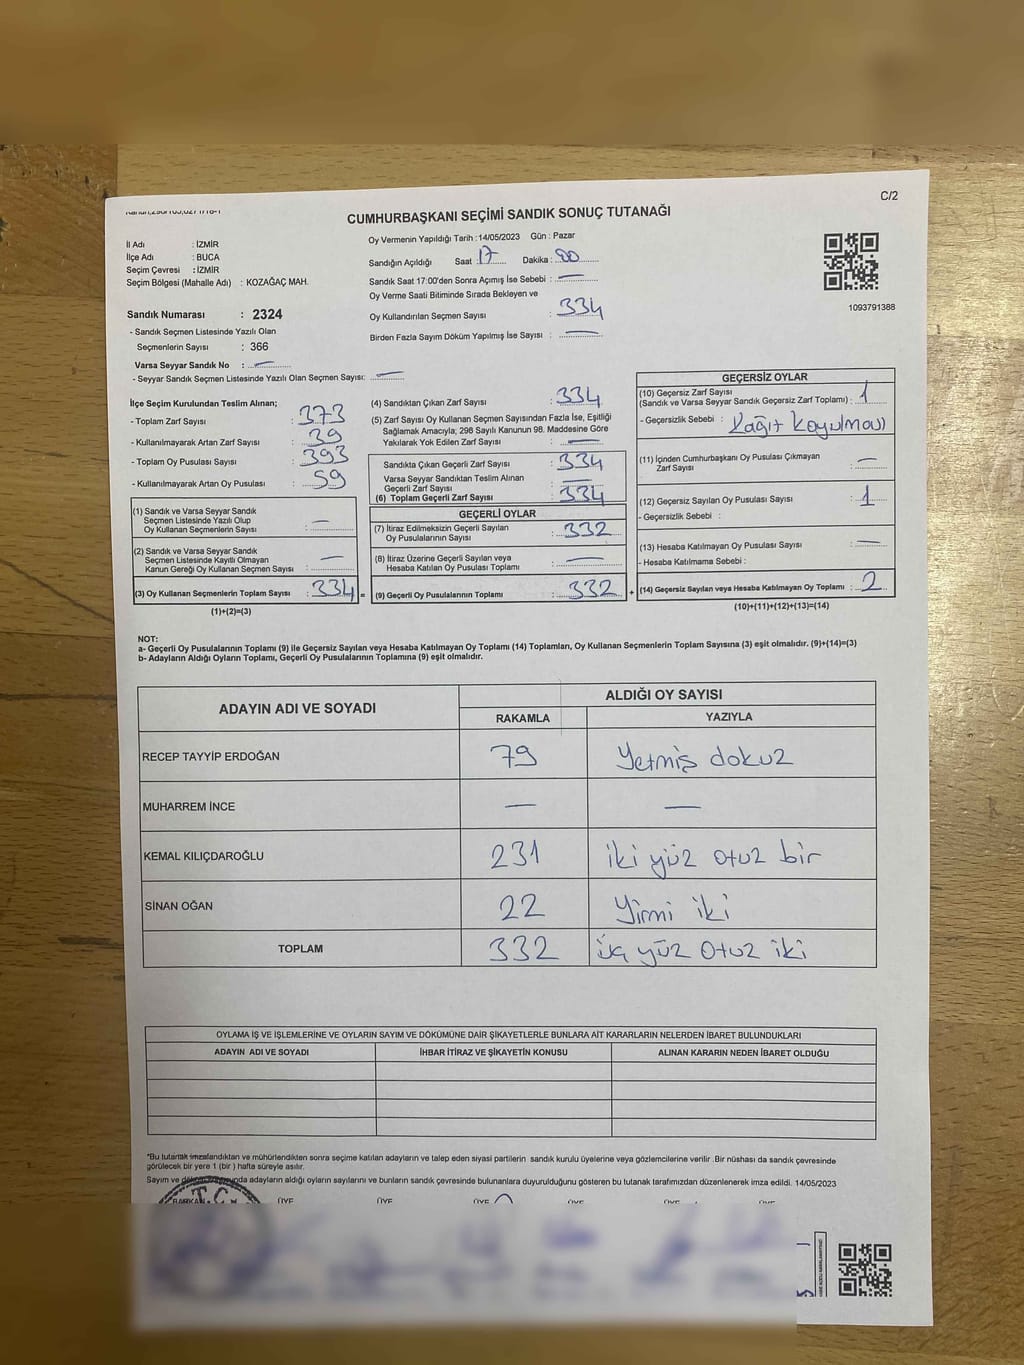 C/2
CUMHURBAŞKANI SEÇİMİ SANDIK SONUÇ TUTANAĞI
İl Adı : İZMİR
İlçe Adı : BUCA
Seçim Çevresi : İZMİR
Seçim Bölgesi (Mahalle Adı) : KOZAĞAÇ MAH.
Sandık Numarası : 2324
- Sandık Seçmen Listesinde Yazılı Olan
Seçmenlerin Sayısı : 366
Varsa Seyyar Sandık No : —
- Seyyar Sandık Seçmen Listesinde Yazılı Olan Seçmen Sayısı: —
Oy Vermenin Yapıldığı Tarih :14/05/2023 Gün : Pazar
Sandığın Açıldığı Saat : 17 Dakika : 00
Sandık Saat 17:00'den Sonra Açımış İse Sebebi : —
Oy Verme Saati Bitiminde Sırada Bekleyen ve
Oy Kullandırılan Seçmen Sayısı : 334
Birden Fazla Sayım Döküm Yapılmış İse Sayısı : —
1093791388
İlçe Seçim Kurulundan Teslim Alınan;
- Toplam Zarf Sayısı : 373
- Kullanılmayarak Artan Zarf Sayısı : 39
- Toplam Oy Pusulası Sayısı : 393
- Kullanılmayarak Artan Oy Pusulası : 59
(1) Sandık ve Varsa Seyyar Sandık
Seçmen Listesinde Yazılı Olup
Oy Kullanan Seçmenlerin Sayısı : —
(2) Sandık ve Varsa Seyyar Sandık
Seçmen Listesinde Kayıtlı Olmayan
Kanun Gereği Oy Kullanan Seçmen Sayısı : —
(3) Oy Kullanan Seçmenlerin Toplam Sayısı : 334 =
(1)+(2)=(3)
(4) Sandıktan Çıkan Zarf Sayısı : 334
(5) Zarf Sayısı Oy Kullanan Seçmen Sayısından Fazla İse, Eşitliği
Sağlamak Amacıyla; 298 Sayılı Kanunun 98. Maddesine Göre
Yakılarak Yok Edilen Zarf Sayısı : —
Sandıkta Çıkan Geçerli Zarf Sayısı : 334
Varsa Seyyar Sandıktan Teslim Alınan
Geçerli Zarf Sayısı : —
(6) Toplam Geçerli Zarf Sayısı : 334
GEÇERLİ OYLAR
(7) İtiraz Edilmeksizin Geçerli Sayılan
Oy Pusulalarının Sayısı : 332
(8) İtiraz Üzerine Geçerli Sayılan veya
Hesaba Katılan Oy Pusulası Toplamı : —
(9) Geçerli Oy Pusulalarının Toplamı : 332 +
GEÇERSİZ OYLAR
(10) Geçersiz Zarf Sayısı
(Sandık ve Varsa Seyyar Sandık Geçersiz Zarf Toplamı) : 1
- Geçersizlik Sebebi : Kağıt Koyulması
(11) İçinden Cumhurbaşkanı Oy Pusulası Çıkmayan
Zarf Sayısı : —
(12) Geçersiz Sayılan Oy Pusulası Sayısı : 1
- Geçersizlik Sebebi :
(13) Hesaba Katılmayan Oy Pusulası Sayısı : —
- Hesaba Katılmama Sebebi :
(14) Geçersiz Sayılan veya Hesaba Katılmayan Oy Toplamı : 2
(10)+(11)+(12)+(13)=(14)
NOT:
a- Geçerli Oy Pusulalarının Toplamı (9) ile Geçersiz Sayılan veya Hesaba Katılmayan Oy Toplamı (14) Toplamları, Oy Kullanan Seçmenlerin Toplam Sayısına (3) eşit olmalıdır. (9)+(14)=(3)
b- Adayların Aldığı Oyların Toplamı, Geçerli Oy Pusulalarının Toplamına (9) eşit olmalıdır.
ADAYIN ADI VE SOYADI ALDIĞI OY SAYISI
RAKAMLA YAZIYLA
RECEP TAYYİP ERDOĞAN 79 Yetmiş dokuz
MUHARREM İNCE — —
KEMAL KILIÇDAROĞLU 231 iki yüz otuz bir
SİNAN OĞAN 22 Yirmi iki
TOPLAM 332 üç yüz otuz iki
OYLAMA İŞ VE İŞLEMLERİNE VE OYLARIN SAYIM VE DÖKÜMÜNE DAİR ŞİKAYETLERLE BUNLARA AİT KARARLARIN NELERDEN İBARET BULUNDUKLARI
ADAYIN ADI VE SOYADI İHBAR İTİRAZ VE ŞİKAYETİN KONUSU ALINAN KARARIN NEDEN İBARET OLDUĞU
*Bu tutanak imzalandıktan ve mühürlendikten sonra seçime katılan adayların ve talep eden siyasi partilerin sandık kurulu üyelerine veya gözlemcilerine verilir .Bir nüshası da sandık çevresinde
görülecek bir yere 1 (bir ) hafta süreyle asılır.
Sayım ve adayların aldığı oyların sayılarını ve bunların sandık çevresinde bulunanlara duyurulduğunu gösteren bu tutanak tarafımızdan düzenlenerek imza edildi. 14/05/2023
BAŞKAN ÜYE ÜYE ÜYE ÜYE ÜYE ÜYE
T.C.